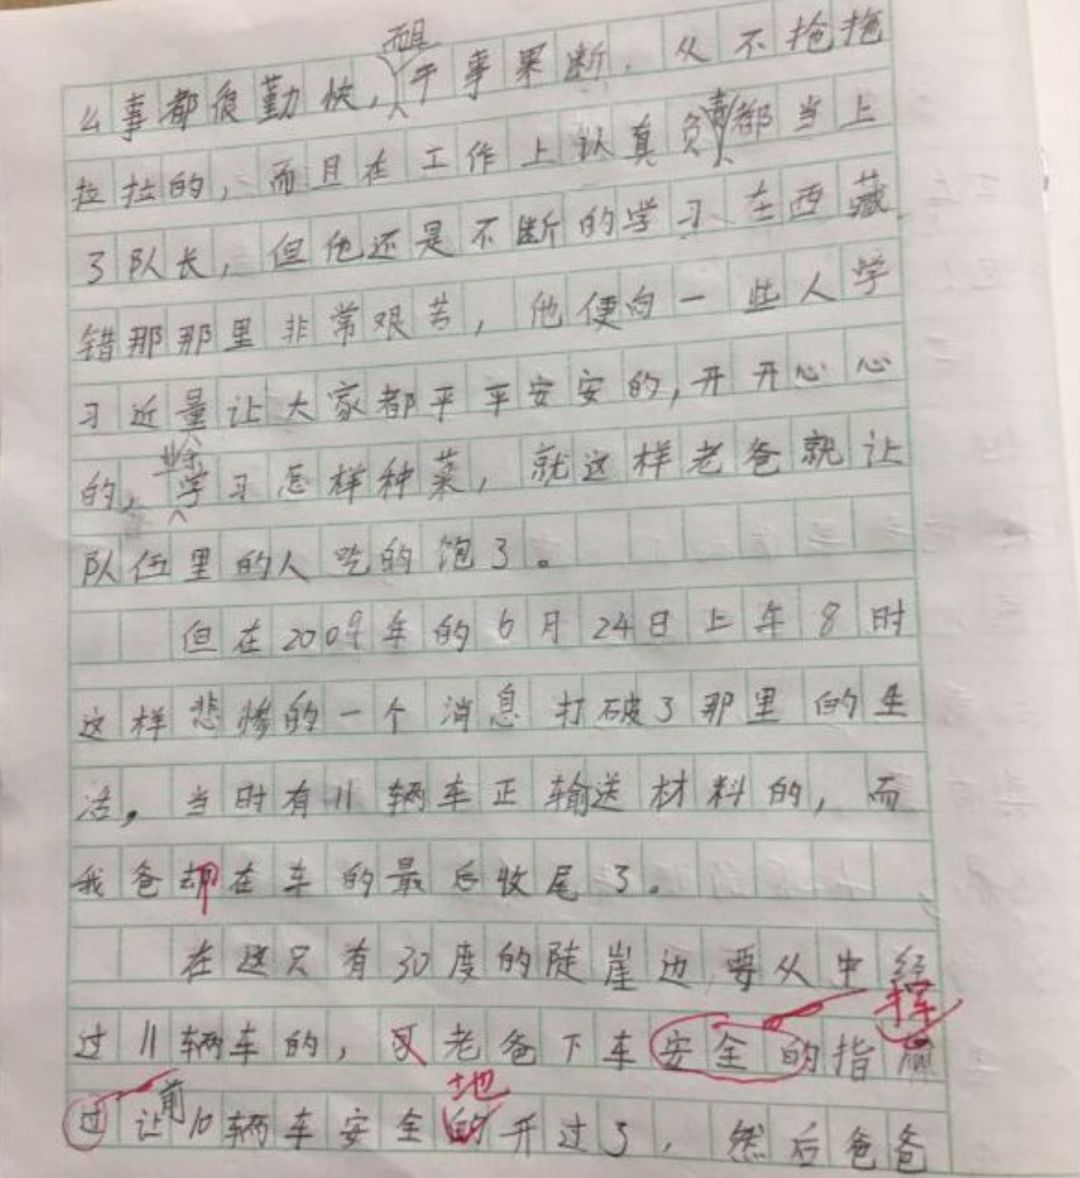 而且
么事都很勤快，干事果断，从不拖拖
拉拉的，而且在工作上认真负责都当上
了队长，但他还是不断的学习在西藏
错那那里非常艰苦，他便向一些人学
习近量让大家都平平安安的，开开心心
的，学习怎样种菜，就这样老爸就让
队伍里的人吃的饱了。
但在2009年的6月24日上午8时
这样悲惨的一个消息打破了那里的生
活，当时有11辆车正输送材料的，而
我爸却在车的最后收尾了。
在这只有30度的陡崖边要从中经
过11辆车的，老爸下车安全的指挥
过让前10辆车安全的地开过了，然后爸爸